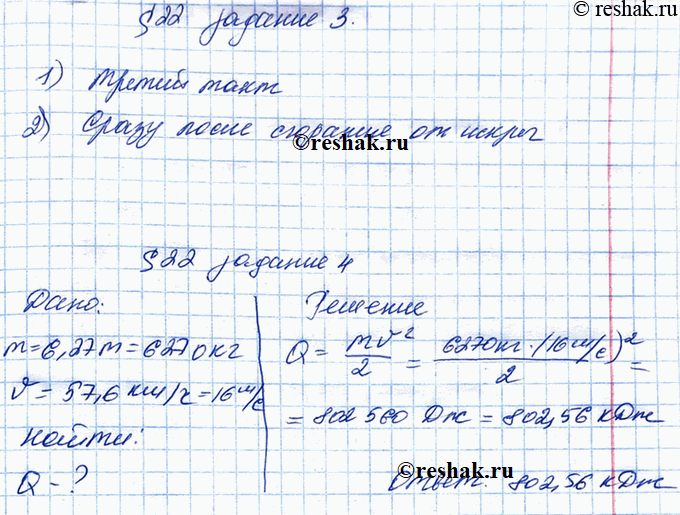 reshak.ru
§22 задание 3.
1) третий такт
2) Сразу после сгорание от искры
©reshak.ru
§22 задание 4
Дано:
m=6,27т=6270кг
v=57,6 км/ч=16м/с
Найти:
Q-?
Решение
Q = mv²/2 = 6270кг·(16м/с)²/2 =
= 802 560 Дж = 802,56 кДж
©reshak.ru
Ответ: 802,56 кДж